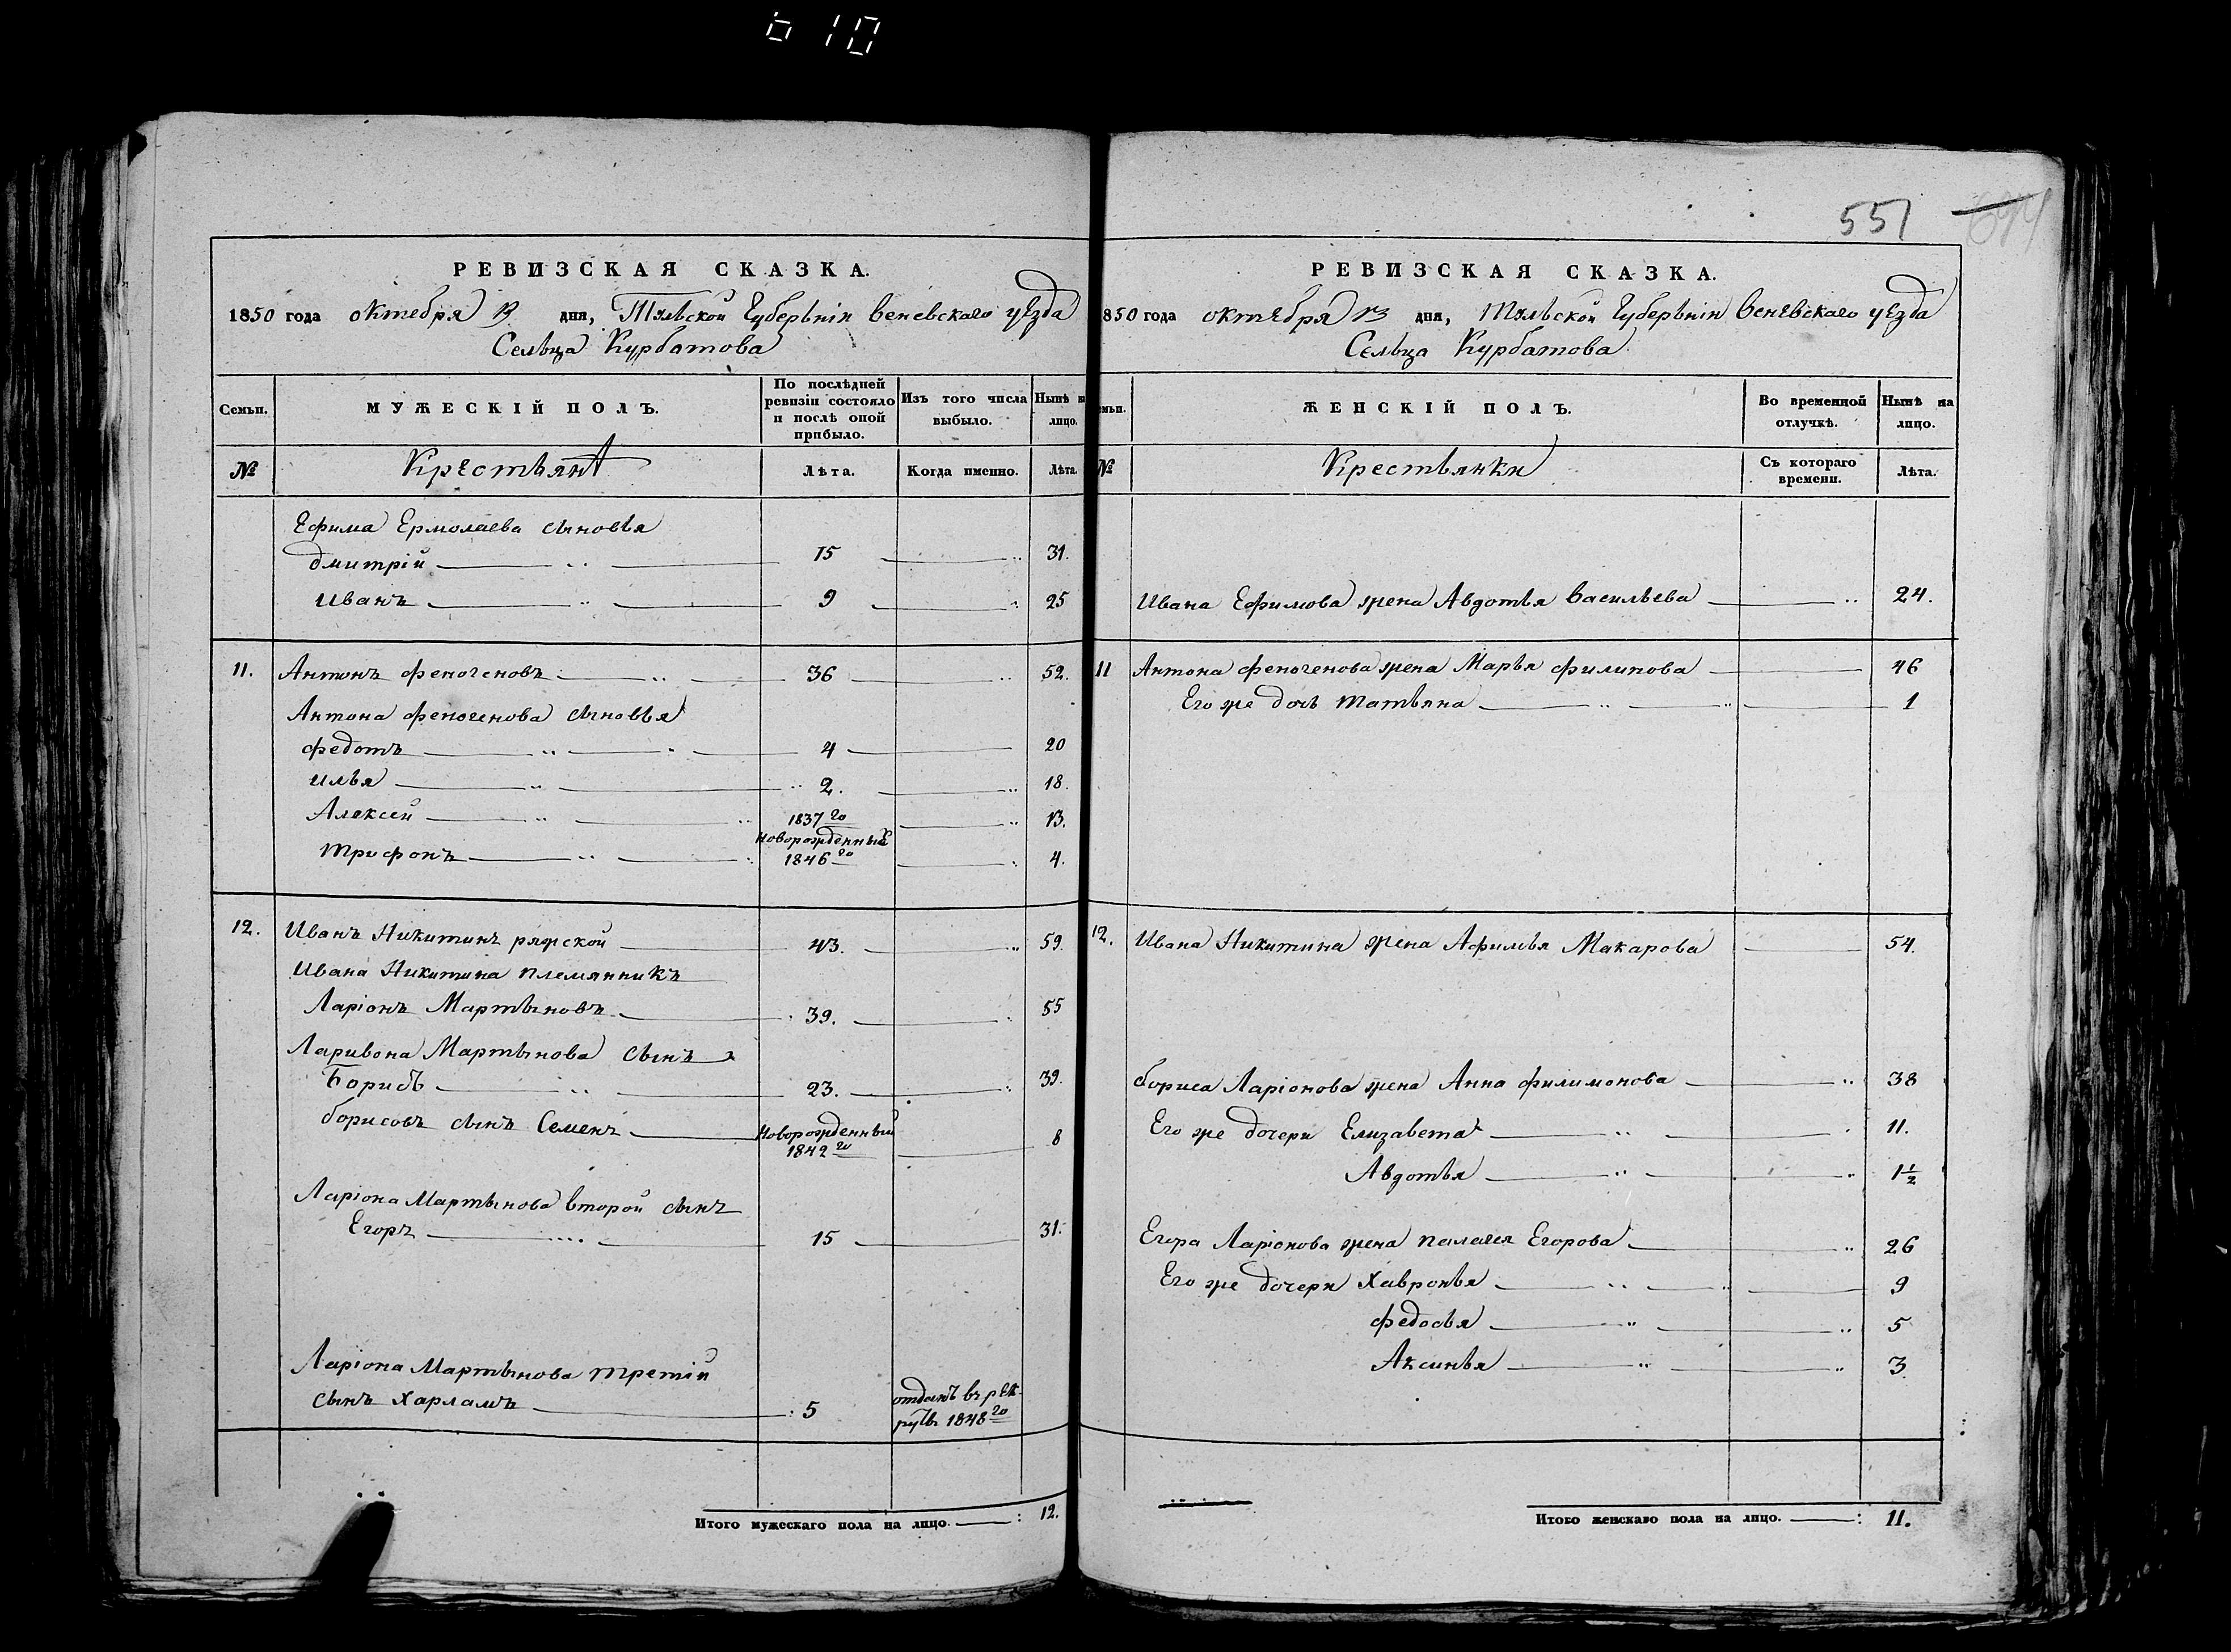 610
551
РЕВИЗСКАЯ СКАЗКА.
1850 года октября 13 дня, Тульской Губернiи Веневскаго уезда
Сельца Курбатова
Семьи.
МУЖЕСКІЙ ПОЛЪ.
По послѣдней ревизіи состояло и послѣ оной прибыло.
Изъ того числа выбыло.
Нынѣ на лицо.
№
Крестьяне
Лѣта.
Когда именно.
Лѣта.
Ефима Ермолаева сыновья
Дмитрій 15 31.
Иванъ 9 25
11. Антонъ Феногеновъ 36 52.
Антона Феногенова сыновья
Федотъ 4 20
Илья 2. 18.
Алексей 1837го 13.
новорожденный
Трифонъ 1846го 4.
12. Иванъ Никитинъ ряжской 43. 59.
Ивана Никитина племянникъ
Ларіонъ Мартыновъ 39. 55
Ларивона Мартынова сынъ
Борисъ 23. 39.
Борисовъ сынъ Семенъ Новорожденный 8
1842го
Ларіона Мартынова второй сынъ
Егоръ 15 31.
Ларіона Мартынова третій
сынъ Харламъ 5 отданъ въ рек-
руты 1848го
Итого мужескаго пола на лицо. 12.
РЕВИЗСКАЯ СКАЗКА.
850 года октября 13 дня, Тульской Губернiи Веневскаго уезда
Сельца Курбатова
мьи.
ЖЕНСКІЙ ПОЛЪ.
Во временной отлучкѣ.
Нынѣ на лицо.
№
Крестьянки
Съ котораго времени.
Лѣта.
Ивана Ефимова жена Авдотья Васильева 24.
11 Антона Феногенова жена Марья Филипова 46
Его же дочь Татьяна 1
12. Ивана Никитина жена Афимья Макарова 54.
Бориса Ларіонова жена Анна Филимонова 38
Его же дочери Елизавета 11.
Авдотья 1½
Егора Ларіонова жена Пелагея Егорова 26
Его же дочери Хавронья 9
Федосья 5
Аксинья 3
Итого женскаго пола на лицо. 11.